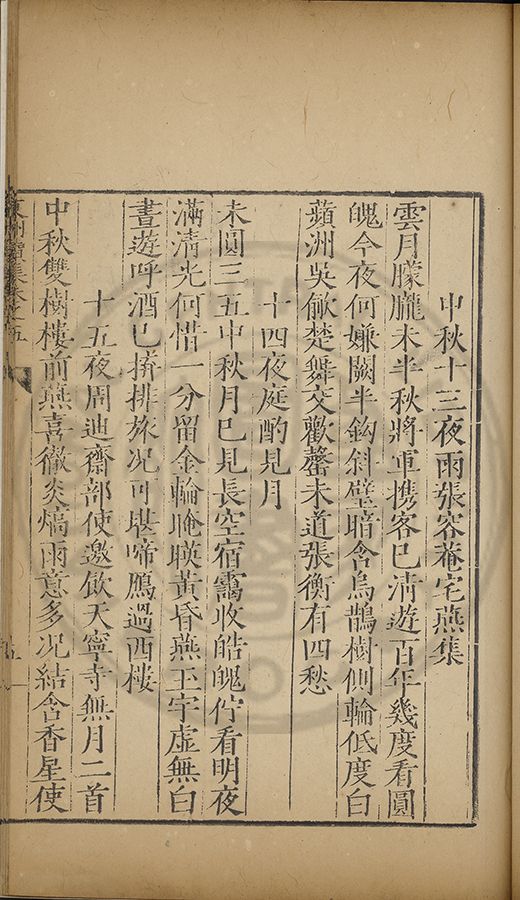 中秋十三夜雨張容菴宅燕集
雲月朦朧未半秋將軍携客巳清遊百年幾度看圓
魄今夜何嫌闕半鈎斜璧暗含烏鵲樹側輪低度白
蘋洲吳歈楚舞交歡罄未道張衡有四愁
十四夜庭酌見月
未圓三五中秋月巳見長空宿靄收皓魄佇看明夜
滿清光何惜一分留金輪晻暎黃昏燕玉宇虛無白
晝遊呼酒巳拚排旅况可堪啼鴈過西樓
十五夜周迪齋部使邀飲天寧寺無月二首
中秋雙樹樓前燕喜徹炎熇雨意多况結含香星使
集卷之五